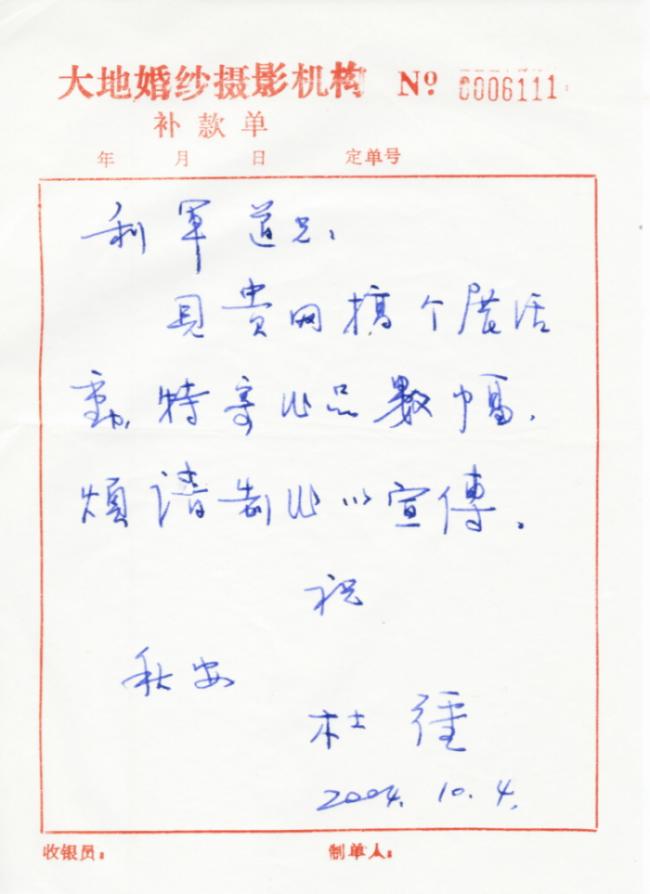 大地婚纱摄影机构 Nº 0006111
补款单
年 月 日 定单号
利軍道兄：
見贵网搞个展活
動，特寄作品数幅，
煩请制作以宣傳。
祝
秋安
杜
2004.10.4.
收银员： 制单人：